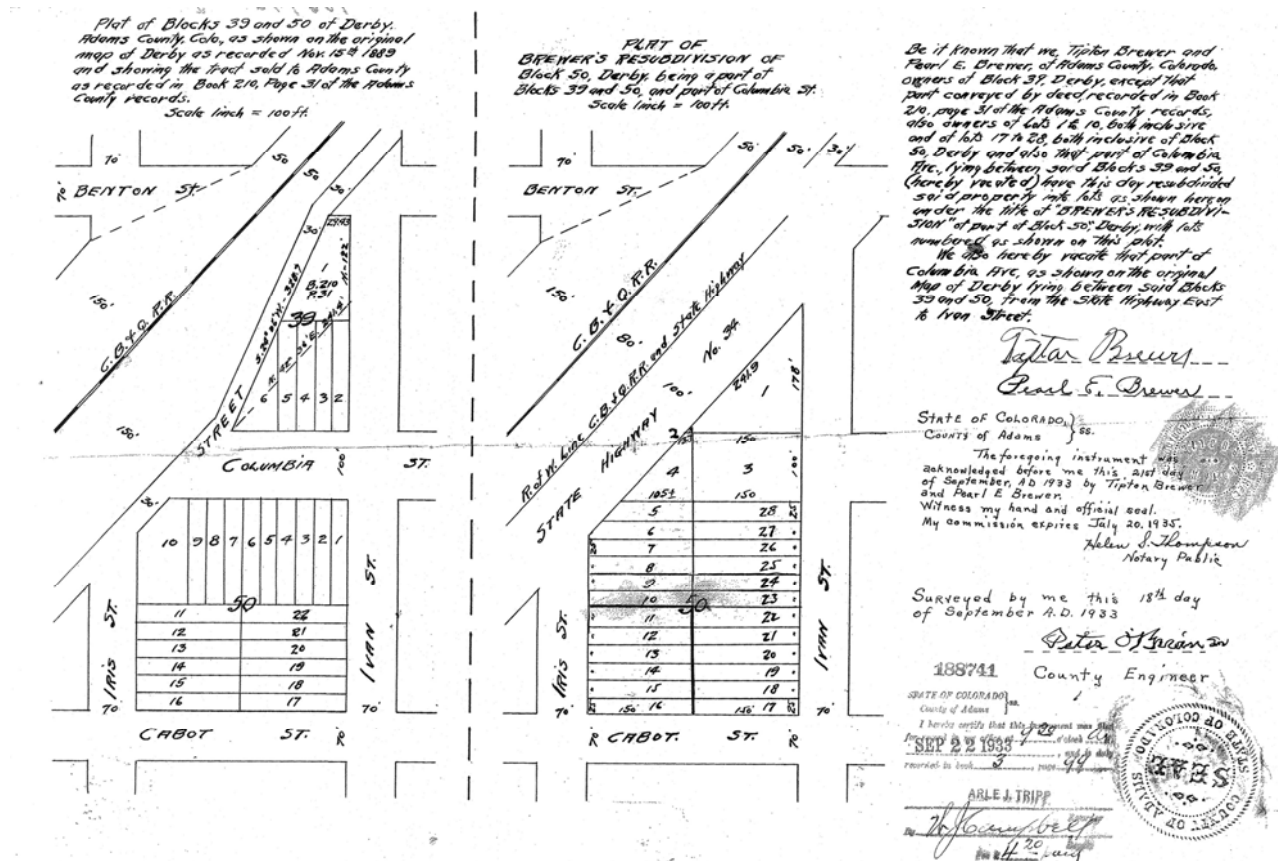 Plat of Blocks 39 and 50 of Derby.
Adams County, Colo., as shown on the original
map of Derby as recorded Nov. 15th 1889
and showing the tract sold to Adams County
as recorded in Book 210, Page 31 of the Adams
County records.
Scale 1inch = 100ft.
70'
50'
BENTON St.
70'
50
30'
29.43
30'
150'
C.B. & Q.R.R.
1
B.210
P.31
39
6 5 4 3 2
150'
STREET
COLUMBIA ST.
100'
10 9 8 7 6 5 4 3 2 1
50
11 22
12 21
13 20
14 19
15 18
16 17
IRIS ST.
IVAN ST.
70'
70'
CABOT ST.
70'
PLAT OF
BREWER'S RESUBDIVISION OF
Block 50, Derby, being a part of
Blocks 39 and 50, and part of Columbia St.
Scale 1inch = 100ft.
70'
50'
50'
30'
BENTON ST.
150'
C.B. & Q.R.R.
80'
R. of W. Line C.B.&Q.RR. and State Highway
No. 34
100'
STATE HIGHWAY
241.9
1
178'
2
150
4 3
100'
105± 150
5 28
25
6 27
25
7 26
8 25
9 24
10 23
50
11 22
12 21
13 20
14 19
15 18
16 17
25
150' 150'
25
IRIS ST.
IVAN ST.
70'
70'
CABOT. ST.
70'
Be it known that we, Tipton Brewer and
Pearl E. Brewer, of Adams County, Colorado,
owners of Block 39, Derby, except that
part conveyed by deed, recorded in Book
210, page 31 of the Adams County records,
also owners of Lots 1 to 10, both inclusive
and of lots 17 to 28, both inclusive of Block
50, Derby and also that part of Columbia
Ave., lying between said Blocks 39 and 50,
(hereby vacated) have this day resubdivided
said property into lots as shown hereon
under the title of "BREWER'S RESUBDIVI-
SION" of part of Block 50", Derby, with lots
numbered as shown on this plat.
We also hereby vacate that part of
Columbia Ave, as shown on the original
Map of Derby lying between said Blocks
39 and 50, from the State Highway East
to Ivan Street.
Pearl E. Brewer
STATE OF COLORADO, } ss.
County of Adams
The foregoing instrument was
acknowledged before me this 21st day
of September, AD 1933 by Tipton Brewer
and Pearl E Brewer.
Witness my hand and official seal.
My commission expires July 20, 1935.
Helen S. Thompson
Notary Public
Surveyed by me this 18th day
of September A.D. 1933
Peter O'Brian
County Engineer
188741
STATE OF COLORADO } ss.
County of Adams
I hereby certify that this instrument was filed
for record in my office at 9 28 o'clock A M
SEP 22 1933 and is duly
recorded in book 3 page 99
ARLE L. TRIPP
Recorder
By W J Campbell
Deputy
COUNTY OF ADAMS STATE OF COLORADO
SEAL